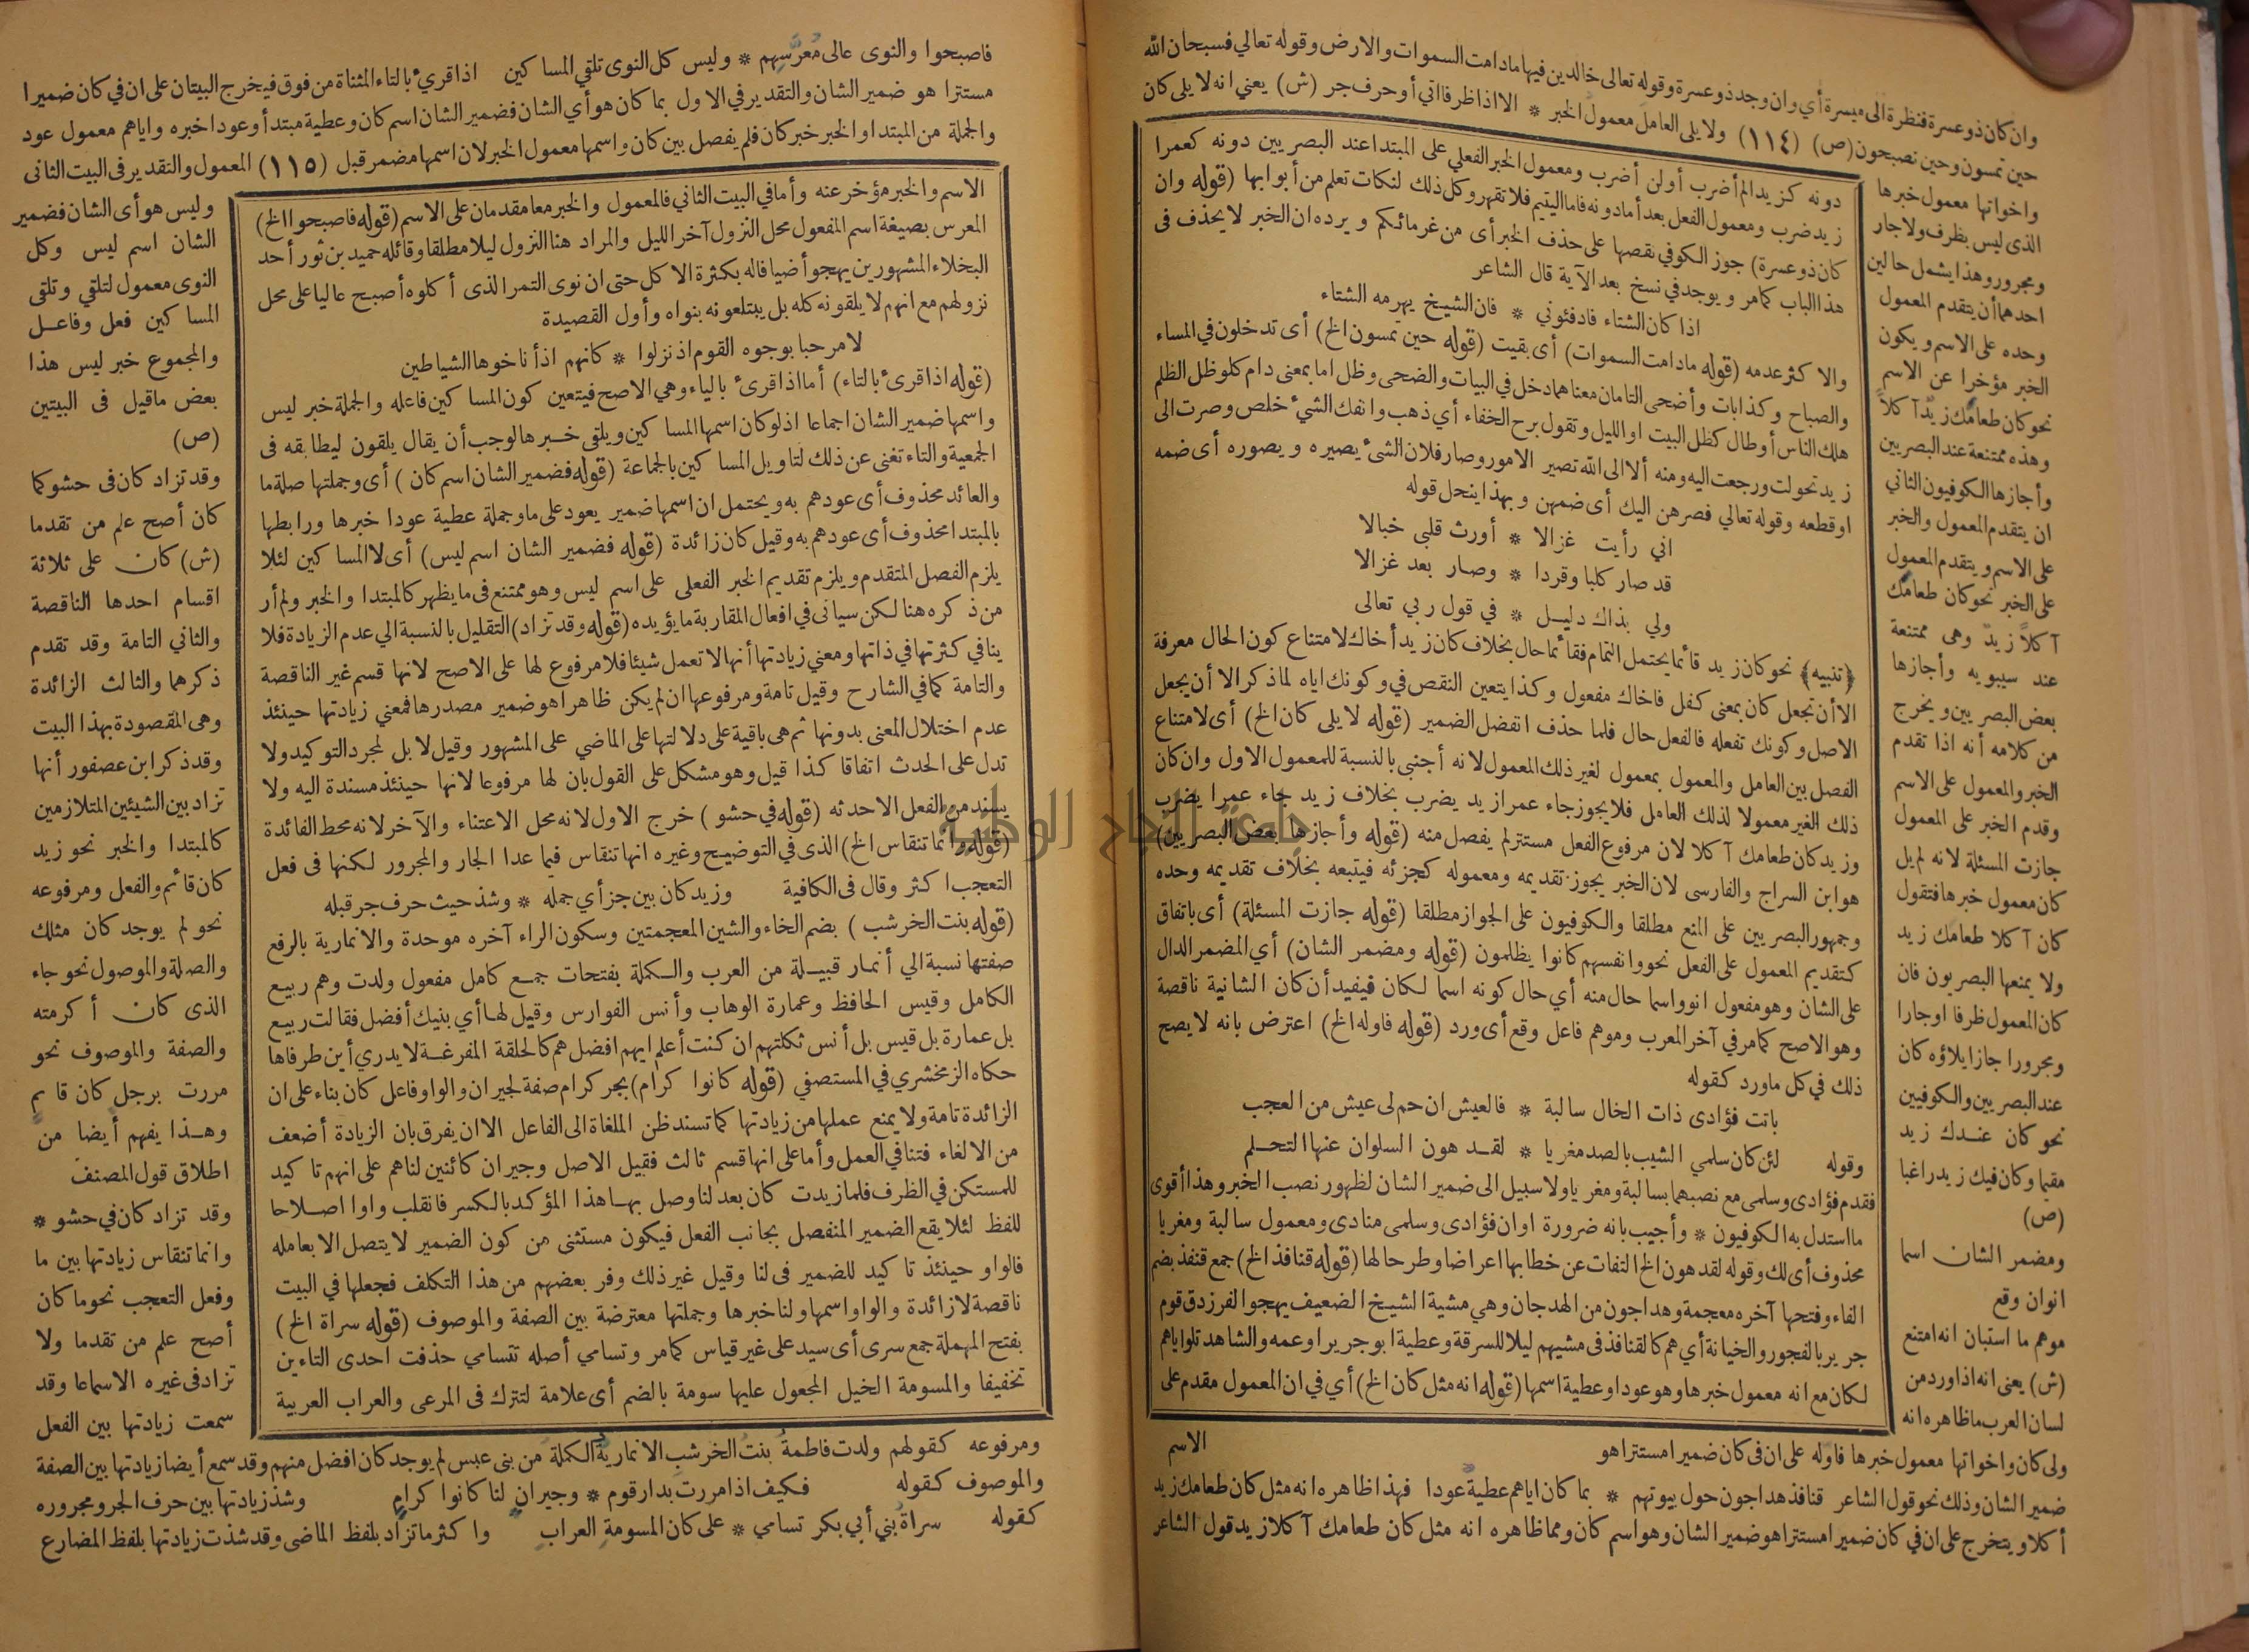 وان كان ذو عسرة فنظرة الى ميسرة أي وان وجد ذو عسرة وقوله تعالى خالدين فيها مادامت السموات والارض وقوله تعالي فسبحان الله
حين تمسون وحين تصبحون (ص) (١١٤) ولا يلى العامل معمول الخبر * الا اذا ظرفا اتي أو حرف جر (ش) يعني انه لا يلى كان
واخواتها معمول خبرها
الذى ليس بظرف ولا جار
ومجرور وهذا يشمل حالين
احدهما أن يتقدم المعمول
وحده على الاسم ويكون
الخبر مؤخرا عن الاسم
نحو كان طعامك زيد آكلا
وهذه ممتنعة عند البصريين
وأجازها الكوفيون الثاني
ان يتقدم المعمول والخبر
على الاسم ويتقدم المعمول
على الخبر نحو كان طعامك
آكلا زيد وهى ممتنعة
عند سيبويه وأجازها
بعض البصريين ويخرج
من كلامه أنه اذا تقدم
الخبر والمعمول على الاسم
وقدم الخبر على المعمول
جازت المسئلة لانه لم يل
كان معمول خبرها فتقول
كان آكلا طعامك زيد
ولا يمنعها البصريون فان
كان المعمول ظرفا او جارا
ومجرورا جاز ايلاؤه كان
عند البصريين والكوفيين
نحو كان عندك زيد
مقيما وكان فيك زيد راغبا
(ص)
ومضمر الشان اسما
انوان وقع
موهم ما استبان انه امتنع
(ش) يعنى انه اذا ورد من
لسان العرب ما ظاهره انه
ولى كان واخواتها معمول خبرها فاوله على ان فى كان ضميرا مستترا هو
ضمير الشان وذلك نحو قول الشاعر قنافذ هداجون حول بيوتهم * بما كان اياهم عطية عودا فهذا ظاهره انه مثل كان طعامك زيد
أكلا ويتخرج على ان في كان ضميرا مستترا هو ضمير الشان وهو اسم كان ومما ظاهره انه مثل كان طعامك آكلا زيد قول الشاعر
دونه كزيدا لم أضرب أولن أضرب ومعمول الخبر الفعلي على المبتدا عند البصريين دونه كعمرا
زيد ضرب ومعمول الفعل بعد أما دونه فاما اليتيم فلا تقهر وكل ذلك لنكات تعلم من أبوابها (قوله وان
كان ذو عسرة) جوز الكوفي نقصها على حذف الخبر أى من غرمائكم ويرده ان الخبر لا يحذف فى
هذا الباب كما مر ويوجد في نسخ بعد الآية قال الشاعر
اذا كان الشتاء فادفئوني * فان الشيخ يهرمه الشتاء
والا كثر عدمه (قوله مادامت السموات) أى بقيت (قوله حين تمسون الخ) أى تدخلون في المساء
والصباح وكذا بات وأضحى التامان معناهما دخل في البيات والضحى وظل اما بمعنى دام كلو ظل الظلم
هلك الناس أوطال كظل البيت او الليل وتقول برح الخفاء أي ذهب وانفك الشيء خلص وصرت الى
زيد تحولت ورجعت اليه ومنه ألا الى الله تصير الامور وصار فلان الشئ يصيره ويصوره أى ضمه
او قطعه وقوله تعالي فصرهن اليك أى ضمهن وبهذا ينحل قوله
اني رأيت غزالا * أورث قلبي خبالا
قد صار كلبا وقردا * وصار بعد غزالا
ولي بذاك دليل * في قول ربي تعالى
﴿تنبيه﴾ نحو كان زيد قائما يحتمل التمام فقائما حال بخلاف كان زيد أخاك لامتناع كون الحال معرفة
الا أن تجعل كان بمعنى كفل فاخاك مفعول وكذا يتعين النقص في وكونك اياه لما ذكر الا أن يجعل
الاصل وكونك تفعله فالفعل حال فلما حذف انفصل الضمير (قوله لا يلى كان الخ) أى لامتناع
الفصل بين العامل والمعمول بمعمول لغير ذلك المعمول لانه أجنبي بالنسبة للمعمول الاول وان كان
ذلك الغير معمولا لذلك العامل فلا يجوز جاء عمرا زيد يضرب بخلاف زيد جاء عمرا يضرب
وزيد كان طعامك آكلا لان مرفوع الفعل مستتر لم يفصل منه (قوله وأجازها بعض البصريين)
هو ابن السراج والفارسى لان الخبر يجوز تقديمه ومعموله كجزئه فيتبعه بخلاف تقديمه وحده
وجمهور البصريين على المنع مطلقا والكوفيون على الجواز مطلقا (قوله جازت المسئلة) أى باتفاق
كتقديم المعمول على الفعل نحو وانفسهم كانوا يظلمون (قوله ومضمر الشان) أي المضمر الدال
على الشان وهو مفعول انو واسما حال منه أي حال كونه اسما لكان فيفيد أن كان الشانية ناقصة
وهو الاصح كما مر في آخر المعرب وموهم فاعل وقع أى ورد (قوله فاوله الخ) اعترض بانه لا يصح
ذلك في كل ما ورد كقوله
باتت فؤادى ذات الخال سالبة * فالعيش ان حم لى عيش من العجب
وقوله لئن كان سلمي الشيب بالصد مغريا * لقد هون السلوان عنها التحلم
فقدم فؤادى وسلمى مع نصبهما بسالبة ومغريا ولا سبيل الى ضمير الشان لظهور نصب الخبر وهذا أقوى
ما استدل به الكوفيون * وأجيب بانه ضرورة او ان فؤادى وسلمى منادى ومعمول سالبة ومغريا
محذوف أى لك وقوله لقد هون الخ التفات عن خطابها اعراضا وطرحا لها (قوله قنافذ الخ) جمع قنفذ بضم
الفاء وفتحها آخره معجمة وهداجون من الهدجان وهي مشية الشيخ الضعيف يهجو الفرزدق قوم
جرير بالفجور والخيانة أي هم كالقنافذ فى مشيهم ليلا للسرقة وعطية ابو جرير او عمه والشاهد تلو اياهم
لكان مع انه معمول خبرها وهو عودا وعطية اسمها (قوله انه مثل كان الخ) أي في ان المعمول مقدم على
الاسم
فاصبحوا والنوى عالى معرسهم * وليس كل النوى تلقي المساكين اذا قرئ بالتاء المثناة من فوق فيخرج البيتان على ان في كان ضميرا
مستترا هو ضمير الشان والتقدير في الاول بما كان هو أي الشان فضمير الشان اسم كان وعطية مبتدأ وعودا خبره واياهم معمول عود
والجملة من المبتدا والخبر خبر كان فلم يفصل بين كان واسمها معمول الخبر لان اسمها مضمر قبل (١١٥) المعمول والتقدير فى البيت الثانى
وليس هو أى الشان فضمير
الشان اسم ليس وكل
النوى معمول لتلقي وتلقى
المساكين فعل وفاعل
والمجموع خبر ليس هذا
بعض ماقيل فى البيتين
(ص)
وقد تزاد كان فى حشو كما
كان أصح علم من تقدما
(ش) كان على ثلاثة
اقسام احدها الناقصة
والثاني التامة وقد تقدم
ذكرهما والثالث الزائدة
وهى المقصودة بهذا البيت
وقد ذكر ابن عصفور أنها
تزاد بين الشيئين المتلازمين
كالمبتدا والخبر نحو زيد
كان قائم والفعل ومرفوعه
نحو لم يوجد كان مثلك
والصلة والموصول نحو جاء
الذى كان أكرمته
والصفة والموصوف نحو
مررت برجل كان قائم
وهذا يفهم أيضا من
اطلاق قول المصنف
وقد تزاد كان في حشو *
وانما تنقاس زيادتها بين ما
وفعل التعجب نحو ما كان
أصح علم من تقدما ولا
تزاد فى غيره الا سماعا وقد
سمعت زيادتها بين الفعل
ومرفوعه كقولهم ولدت فاطمة بنت الخرشب الانمارية الكملة من بنى عبس لم يوجد كان افضل منهم وقد سمع أيضا زيادتها بين الصفة
والموصوف كقوله فكيف اذا مررت بدار قوم * وجيران لنا كانوا كرام وشذ زيادتها بين حرف الجر ومجروره
كقوله سراة بني أبي بكر تسامي * على كان المسومة العراب واكثر ما تزاد بلفظ الماضى وقد شذت زيادتها بلفظ المضارع
الاسم والخبر مؤخر عنه وأما في البيت الثاني فالمعمول والخبر معا مقدمان على الاسم (قوله فاصبحوا الخ)
المعرس بصيغة اسم المفعول محل النزول آخر الليل والمراد هنا النزول ليلا مطلقا وقائله حميد بن ثور أحد
البخلاء المشهورين يهجو أضيافا له بكثرة الاكل حتى ان نوى التمر الذى أكلوه أصبح عاليا على محل
نزولهم مع انهم لا يلقونه كله بل يبتلعونه بنواه وأول القصيدة
لا مرحبا بوجوه القوم اذ نزلوا * كانهم اذ أناخوها الشياطين
(قوله اذا قرئ بالتاء) أما اذا قرئ بالياء وهي الاصح فيتعين كون المساكين فاعله والجملة خبر ليس
واسمها ضمير الشان اجماعا اذ لو كان اسمها المساكين ويلقى خبرها لوجب أن يقال يلقون ليطابقه فى
الجمعية والتاء تغنى عن ذلك لتاويل المساكين بالجماعة (قوله فضمير الشان اسم كان) أى وجملتها صلة ما
والعائد محذوف أى عودهم به ويحتمل ان اسمها ضمير يعود على ما وجملة عطية عودا خبرها ورابطها
بالمبتدا محذوف أى عودهم به وقيل كان زائدة (قوله فضمير الشان اسم ليس) أى لا المساكين لئلا
يلزم الفصل المتقدم ويلزم تقديم الخبر الفعلى على اسم ليس وهو ممتنع فى ما يظهر كالمبتدا والخبر ولم أر
من ذكره هنا لكن سياتى في افعال المقاربة ما يؤيده (قوله وقد تزاد) التقليل بالنسبة الي عدم الزيادة فلا
ينافي كثرتها في ذاتها ومعني زيادتها أنها لا تعمل شيئا فلا مرفوع لها على الاصح لانها قسم غير الناقصة
والتامة كما في الشارح وقيل تامة ومرفوعها ان لم يكن ظاهرا هو ضمير مصدرها فمعني زيادتها حينئذ
عدم اختلال المعنى بدونها ثم هى باقية على دلالتها على الماضي على المشهور وقيل لا بل لمجرد التوكيد ولا
تدل على الحدث اتفاقا كذا قيل وهو مشكل على القول بان لها مرفوعا لانها حينئذ مسندة اليه ولا
يسند من الفعل الا حدثه (قوله في حشو) خرج الاول لانه محل الاعتناء والآخر لانه محط الفائدة
(قوله وانما تنقاس الخ) الذى في التوضيح وغيره انها تنقاس فيما عدا الجار والمجرور لكنها فى فعل
التعجب اكثر وقال فى الكافية وزيد كان بين جزأي جمله * وشذ حيث حرف جر قبله
(قوله بنت الخرشب) بضم الخاء والشين المعجمتين وسكون الراء آخره موحدة والانمارية بالرفع
صفتها نسبة الي أنمار قبيلة من العرب والكملة بفتحات جمع كامل مفعول ولدت وهم ربيع
الكامل وقيس الحافظ وعمارة الوهاب وأنس الفوارس وقيل لها أي بنيك أفضل فقالت ربيع
بل عمارة بل قيس بل أنس ثكلتهم ان كنت أعلم ايهم افضل هم كالحلقة المفرغة لا يدري أين طرفاها
حكاه الزمخشري في المستصفي (قوله كانوا كرام) بجر كرام صفة لجيران والواو فاعل كان بناء على ان
الزائدة تامة ولا يمنع عملها من زيادتها كما تسند ظن الملغاة الى الفاعل الا ان يفرق بان الزيادة أضعف
من الالغاء فتنافي العمل وأما على انها قسم ثالث فقيل الاصل وجيران كائنين لنا هم على انهم تاكيد
للمستكن في الظرف فلما زيدت كان بعد لنا وصل بها هذا المؤكد بالكسر فانقلب واوا اصلاحا
للفظ لئلا يقع الضمير المنفصل بجانب الفعل فيكون مستثنى من كون الضمير لا يتصل الا بعامله
فالواو حينئذ تاكيد للضمير فى لنا وقيل غير ذلك وفر بعضهم من هذا التكلف فجعلها في البيت
ناقصة لا زائدة والواو اسمها ولنا خبرها وجملتها معترضة بين الصفة والموصوف (قوله سراة الخ)
بفتح المهملة جمع سرى أى سيد على غير قياس كما مر وتسامي أصله تتسامي حذفت احدى التاءين
تخفيفا والمسومة الخيل المجعول عليها سومة بالضم أى علامة لتترك فى المرعى والعراب العربية
جامعة النجاح الوطنية